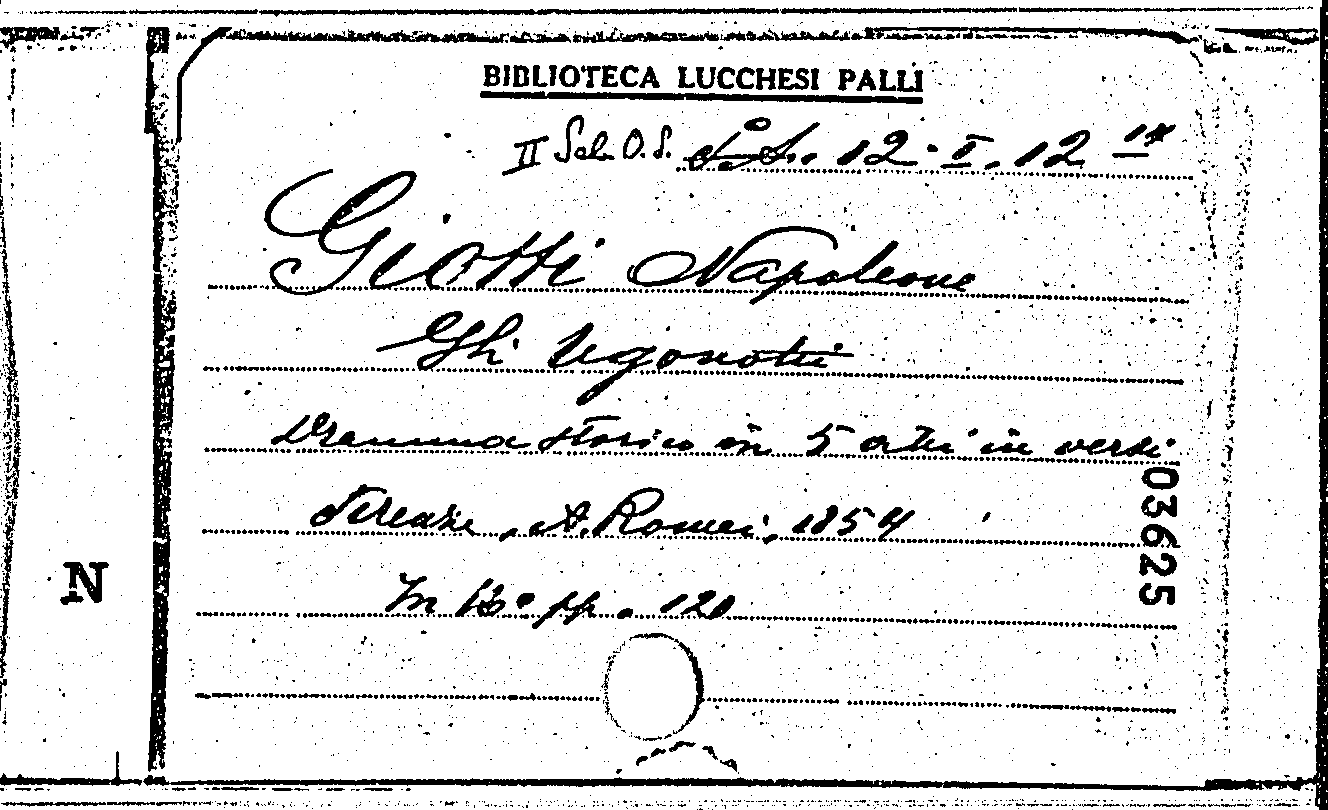 BIBLIOTECA LUCCHESI PALLI
II Sal. O. S. 12. I. 12
Giotti Napoleone
Gli Ugonotti
Dramma storico in 5 atti in versi
Firenze, A. Romei, 1854
In 16° pp. 120
03625
N